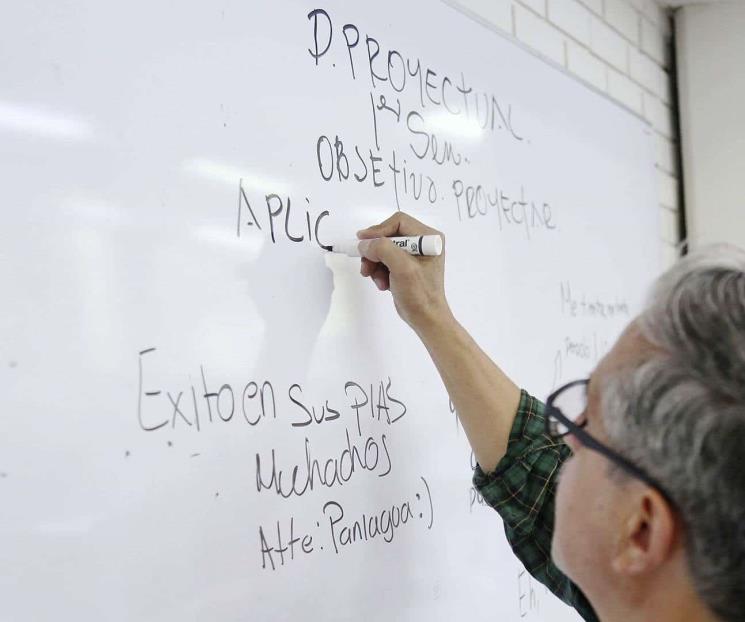 D. PROYECTUAL.
1er Sem.
OBJETIVO. PROYECTAR
APLIC
Exito en Sus PIAS
Muchachos
Atte: Paniagua :)
Eh,